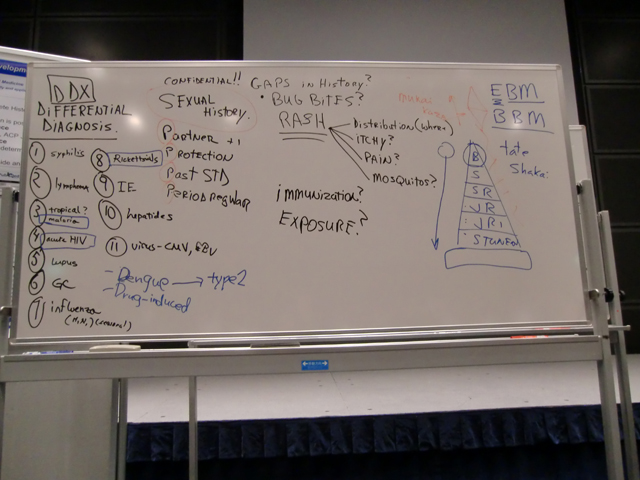 DDX
DIFFERENTIAL
DIAGNOSIS.
1 syphilis
2 lymphoma
3 tropical?
malaria
4 acute HIV
5 lupus
6 GC
7 influenza
8 Rickettsials
9 IE
10 hepatitis
11 virus-CMV, EBV
- Dengue → type2
- Drug-induced
CONFIDENTIAL!!
SEXUAL
HISTORY.
Partner
PROTECTION
Past STD
GAPS in History?
• BUG BITES?
RASH
Distribution (where)
ITCHY?
PAIN?
MOSQUITOS?
immunization?
EXPOSURE?
EBM
BBM
tate
Shakai
B
S
SR
JR
JR1
STUDENT